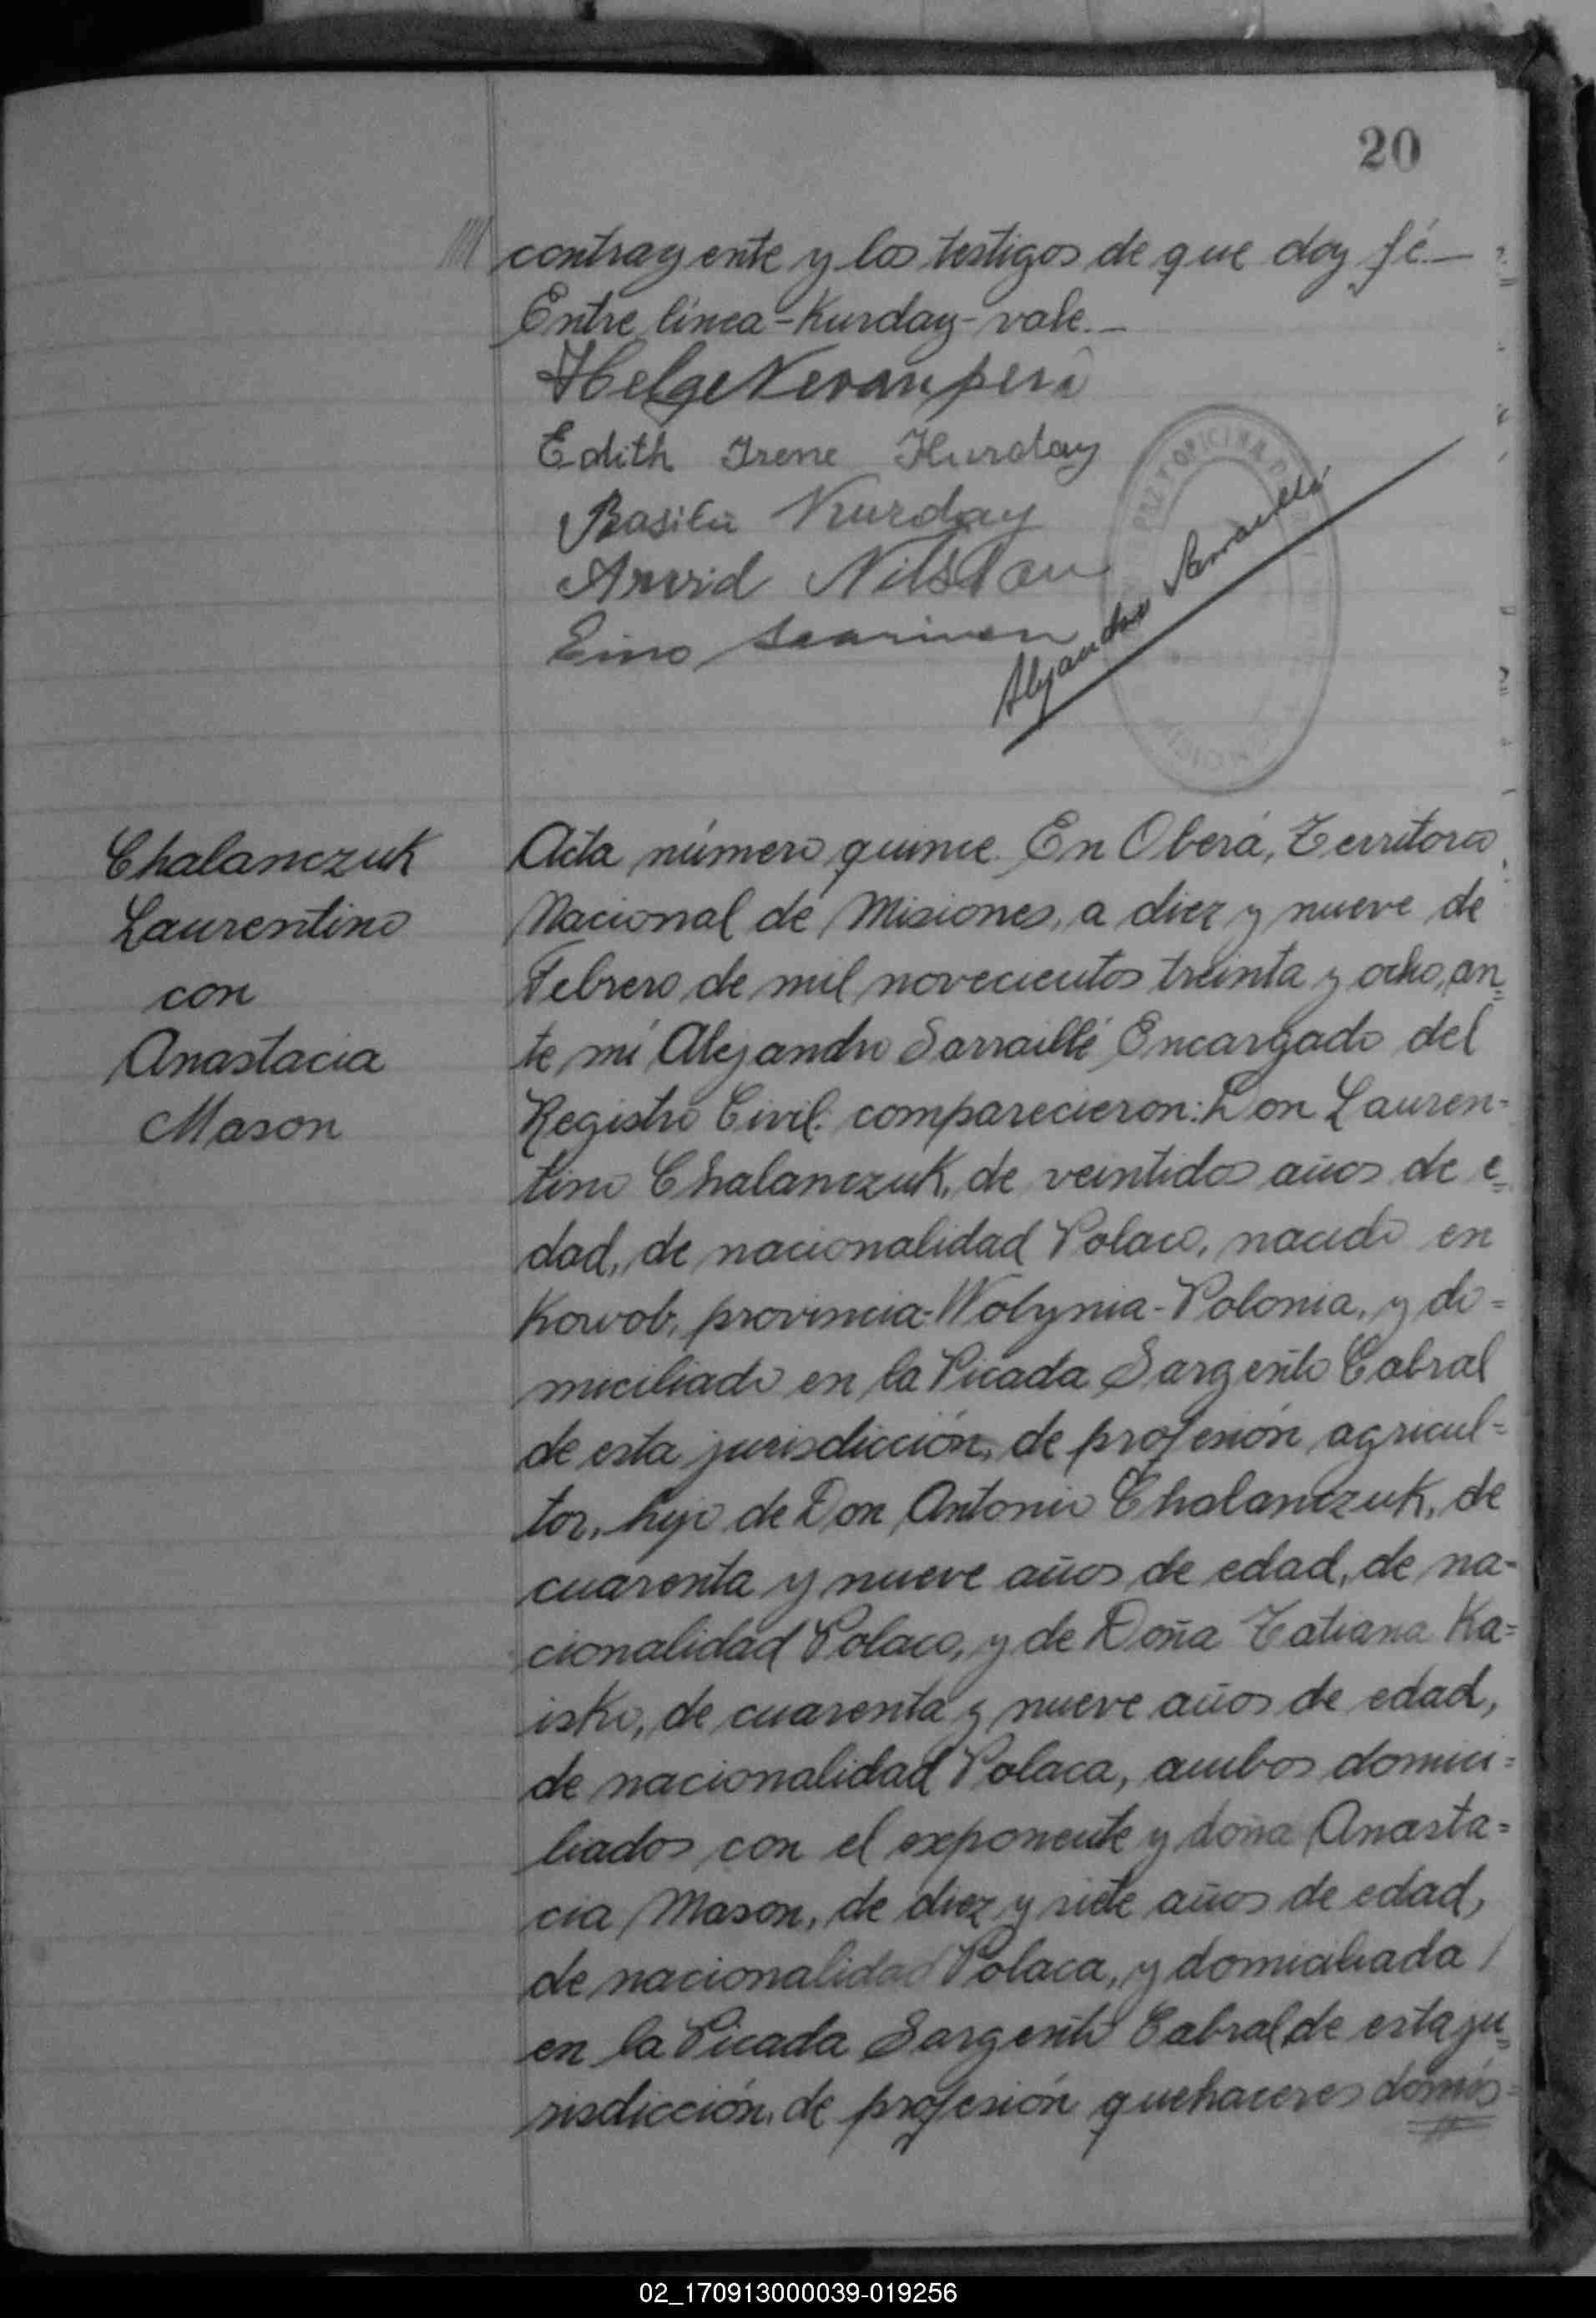 20
contrayente y los testigos de que doy fé.—
Entre línea-Kurday-vale.—
Helge Nevanperä
Edith Irene Kurday
Basilio Kurday
Arvid Nilsson
Eino Saarinen
Alejandro Sarraillé
Chalanczuk
Laurentino
con
Anastacia
Mason
Acta número quince. En Oberá, Territorio
Nacional de Misiones, a diez y nueve de
Febrero de mil novecientos treinta y ocho, an=
te mí Alejandro Sarraillé Encargado del
Registro Civil: comparecieron: Don Lauren=
tino Chalanczuk, de veintidos años de e=
dad, de nacionalidad Polaco, nacido en
Kowob, provincia-Wolynia-Polonia, y do=
miciliado en la Picada Sargento Cabral
de esta jurisdicción, de profesión agricul=
tor, hijo de Don Antonio Chalanczuk, de
cuarenta y nueve años de edad, de na=
cionalidad Polaco, y de Doña Tatiana Ka=
isko, de cuarenta y nueve años de edad,
de nacionalidad Polaca, ambos domici=
liados con el exponente y doña Anasta=
cia Mason, de diez y siete años de edad,
de nacionalidad Polaca, y domiciliada /
en la Picada Sargento Cabral de esta ju=
risdicción, de profesión quehaceres domés=
02_170913000039-019256